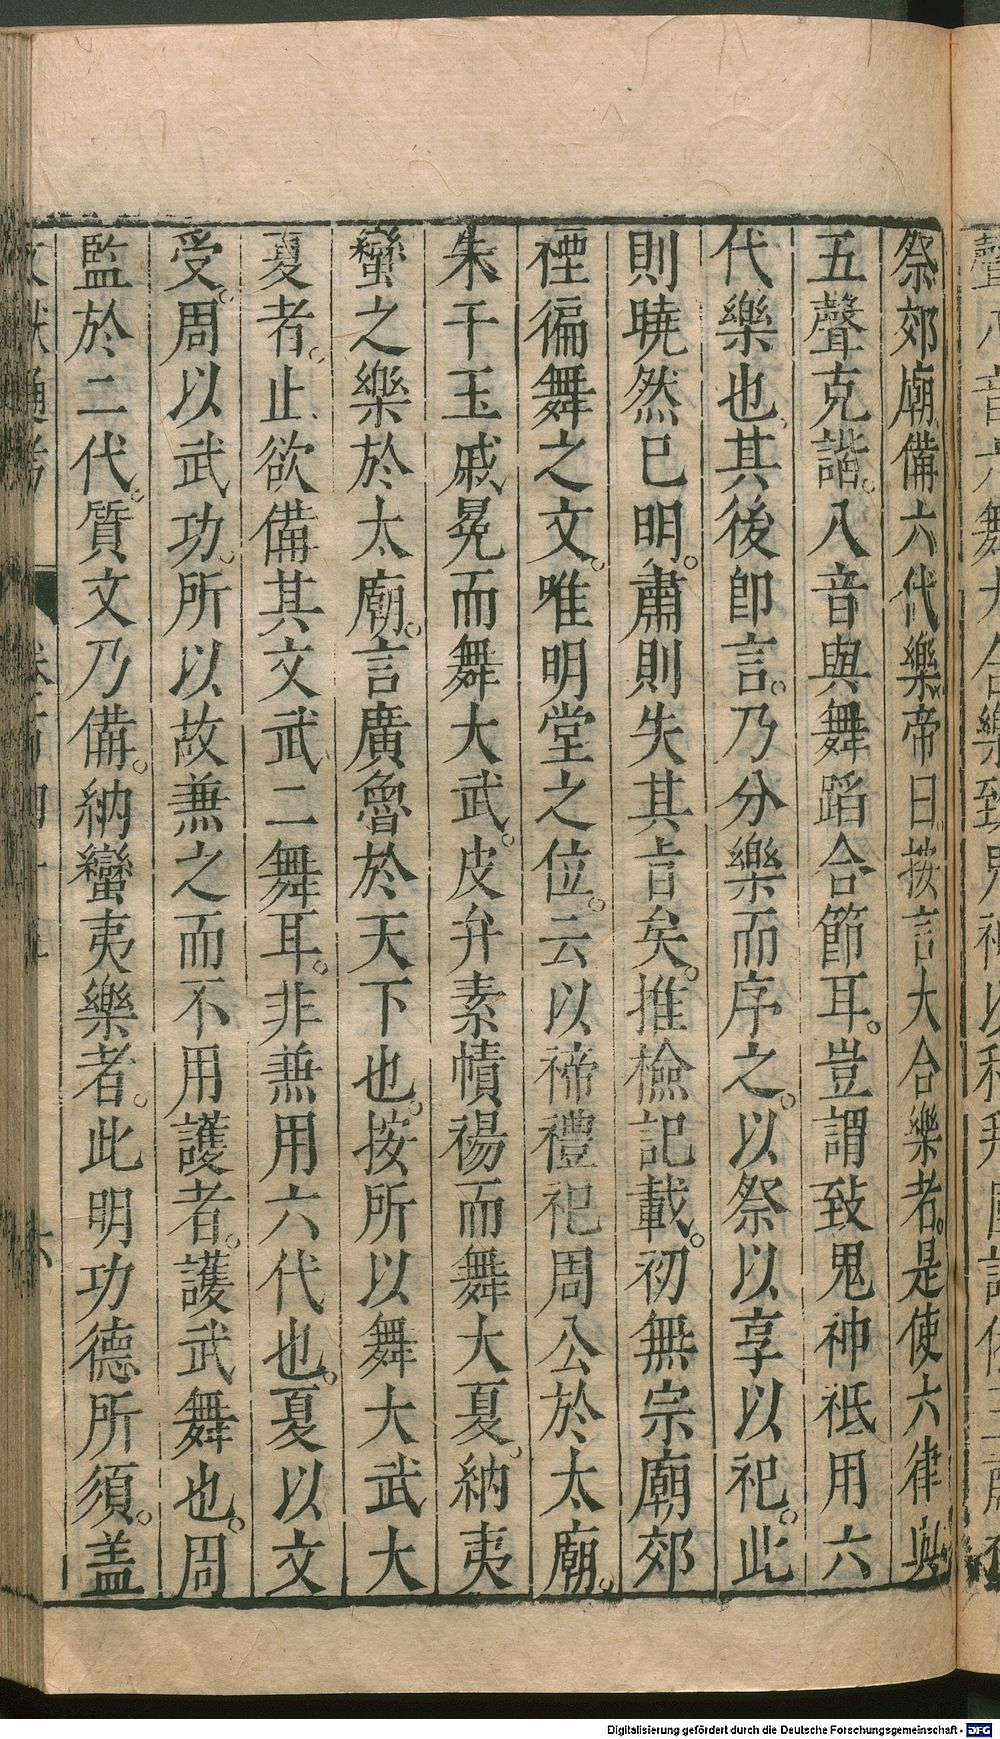 祭郊廟備六代樂帝曰按言大合樂者是使六律與
五聲克諧。八音與舞蹈合節耳。豈謂致鬼神祗用六
代樂也其後卽言。乃分樂而序之。以祭以享以祀。此
則曉然已明。肅則失其旨矣。推檢記載。初無宗廟郊
禋徧舞之文。唯明堂之位。云以禘禮祀周公於太廟。
朱干玉戚冕而舞大武。皮弁素幘裼而舞大夏。納夷
蠻之樂於太廟。言廣魯於天下也。按所以舞大武大
夏者。止欲備其文武二舞耳。非兼用六代也。夏以文
受。周以武功。所以故兼之而不用護者。護武舞也。周
監於二代。質文乃備。納蠻夷樂者。此明功德所須。盖
Digitalisierung gefördert durch die Deutsche Forschungsgemeinschaft - DFG